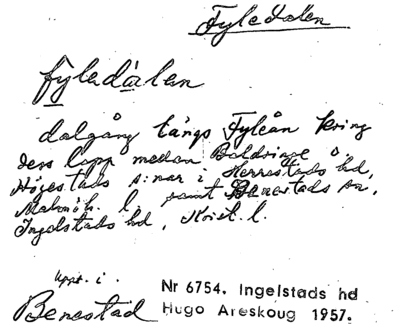 Fyledalen
fyledalen
dalgång längs Fyleån kring
dess lopp mellan Baldringe o
Högestads s:nar i Herrestads hd,
Malmöh. l. samt Benestads sn,
Ingelstads hd, Krist. l.
Uppt. i
Benestad
Nr 6754. Ingelstads hd
Hugo Areskoug 1957.